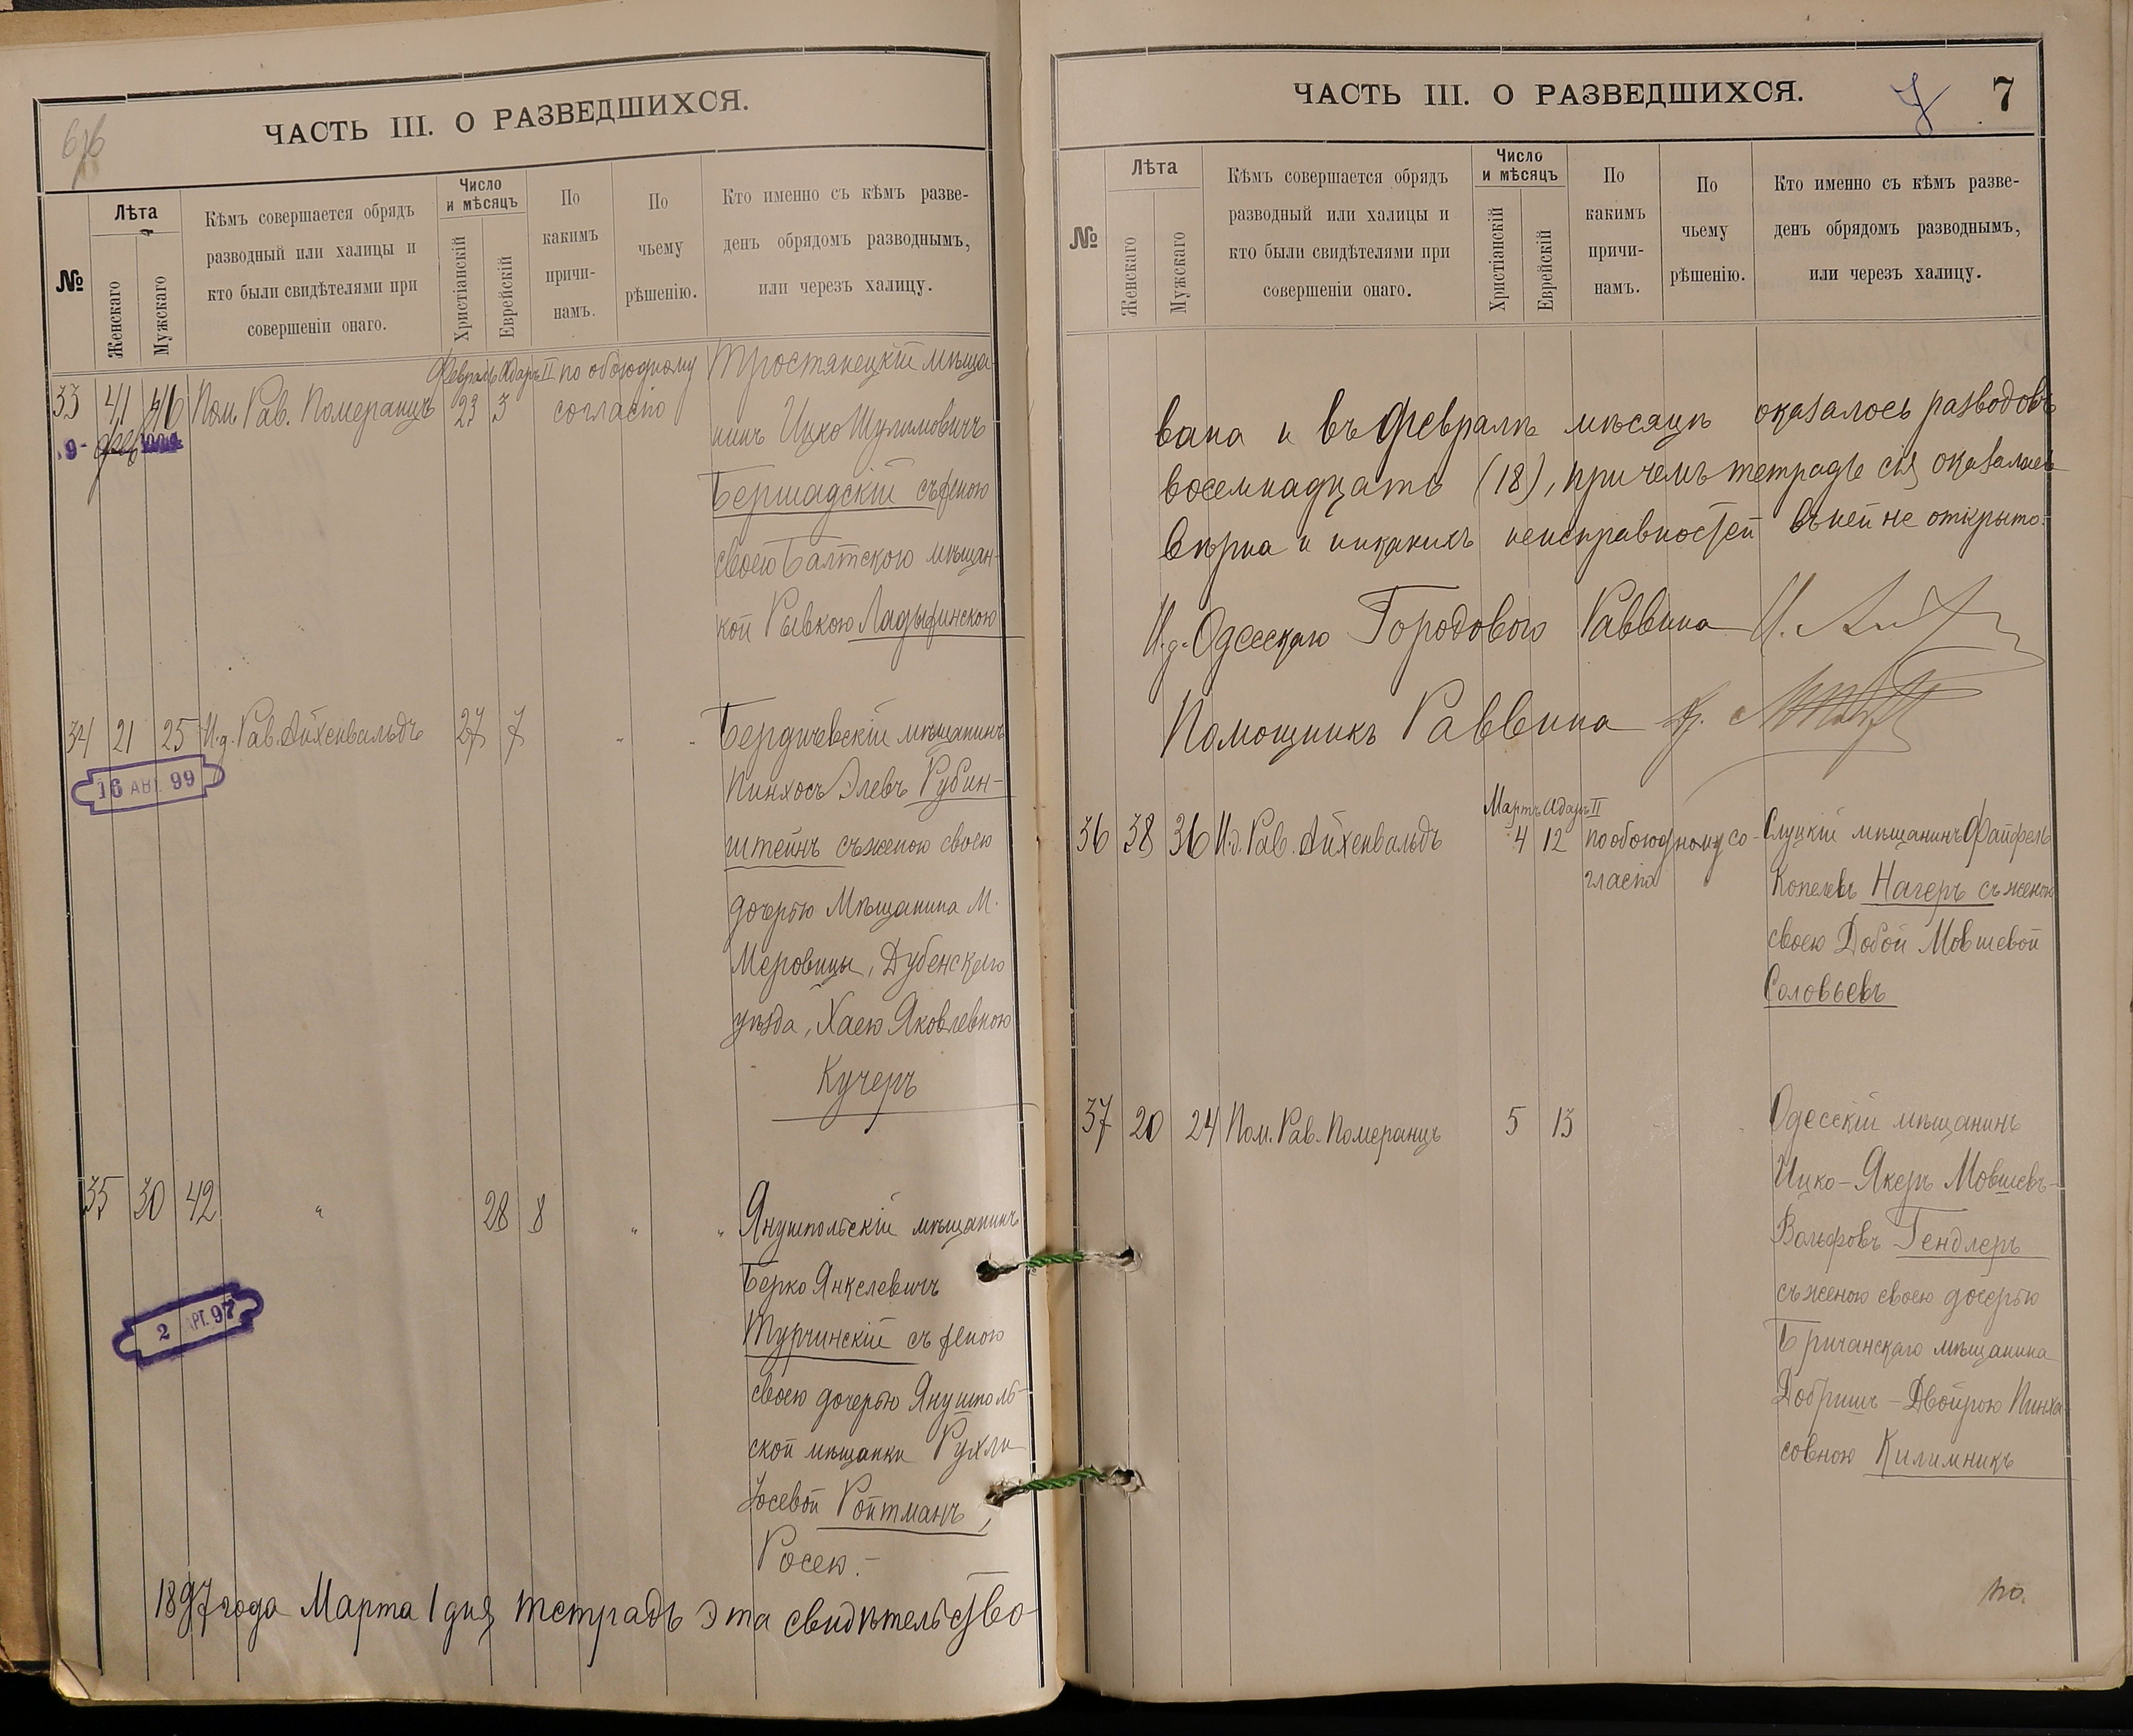 ЧАСТЬ III. О РАЗВЕДШИХСЯ.
№
Лѣта
Женскаго
Мужскаго
Кѣмъ совершается обрядъ
разводный или халицы и
кто были свидѣтелями при
совершеніи онаго.
Число
и мѣсяцъ
Христіанскій
Еврейскій
По
какимъ
причи-
намъ.
По
чьему
рѣшенію.
Кто именно съ кѣмъ разве-
денъ обрядомъ разводнымъ,
или через халицу.
33 41 46 Пом. Рав. Померанцъ Февраль 23 Адаръ II 3 по обоюдному
согласію
Тростянецкій мѣща-
нинъ Ицко Шулимовичъ
Бершадскій съ женою
своею Балтскою мѣщан-
кой Рывкою Ладыжинскою
34 21 25 И.д. Рав. Айхенвальдъ 27 7 " "
16 АВГ. 99
Бердичевскій мѣщанинъ
Пинхосъ Элевъ Рубин-
штейнъ съ женою своею
дочерью Мѣщанина М.
Меровицы, Дубенскаго
уѣзда, Хаею Яковлевною
Кучеръ
35 30 42 " 28 8 " "
2 АРГ. 97
Янушпольскій мѣщанинъ
Берко Янкелевичъ
Турчинскій съ женою
своею дочерью Янушполь-
ской мѣщанки Рухли
Іосевой Ройтманъ,
Росею.-
1897 года Марта 1 дня тетрадь эта свидѣтельство-
ЧАСТЬ III. О РАЗВЕДШИХСЯ.
7 7
№
Лѣта
Женскаго
Мужскаго
Кѣмъ совершается обрядъ
разводный или халицы и
кто были свидѣтелями при
совершеніи онаго.
Число
и мѣсяцъ
Христіанскій
Еврейскій
По
какимъ
причи-
намъ.
По
чьему
рѣшенію.
Кто именно съ кѣмъ разве-
денъ обрядомъ разводнымъ,
или черезъ халицу.
вана и въ Февралѣ мѣсяцѣ оказалось разводовъ
восемнадцать (18), причемъ тетрадь сія оказалась
вѣрна и никакихъ неисправностей въ ней не открыто.
И.д. Одесскаго Городового Раввина
Помощникъ Раввина
36 38 36 И.д. Рав. Айхенвальдъ Мартъ 4 Адаръ II 12 по обоюдному со-
гласію
Слуцкій мѣщанинъ Файфель
Копелевъ Нагеръ съ женою
своею Добой Мовшевой
Соловьевъ
37 20 24 Пом. Рав. Померанцъ 5 13
Одесскій мѣщанинъ
Ицко-Якеръ Мовшевъ-
Вольфовъ Гендлеръ
съ женою своею дочерью
Бричанскаго мѣщанина
Добришъ-Двойрою Пинха-
совною Килимникъ
по.